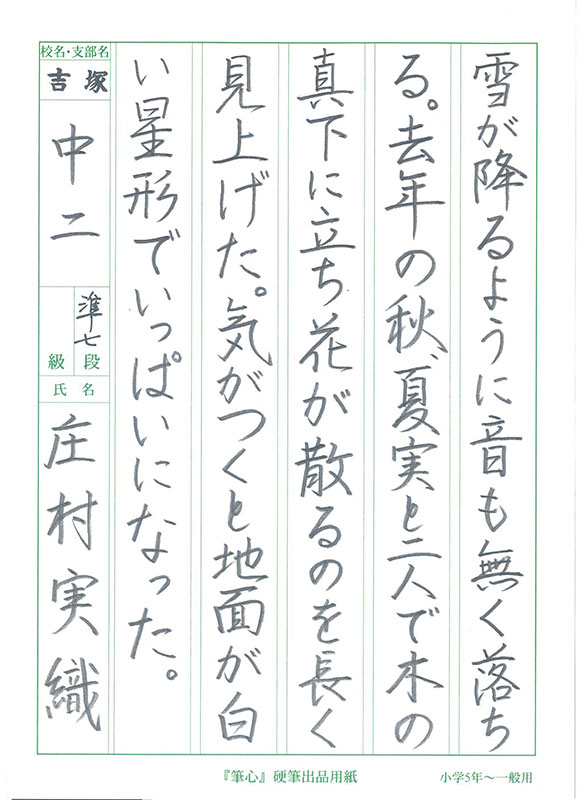 雪が降るように音も無く落ち
る。去年の秋、夏実と二人で木の
真下に立ち花が散るのを長く
見上げた。気がつくと地面が白
い星形でいっぱいになった。
校名・支部名
吉塚
中二
準七
段
級
氏名
庄村実織
『筆心』硬筆出品用紙
小学5年〜一般用